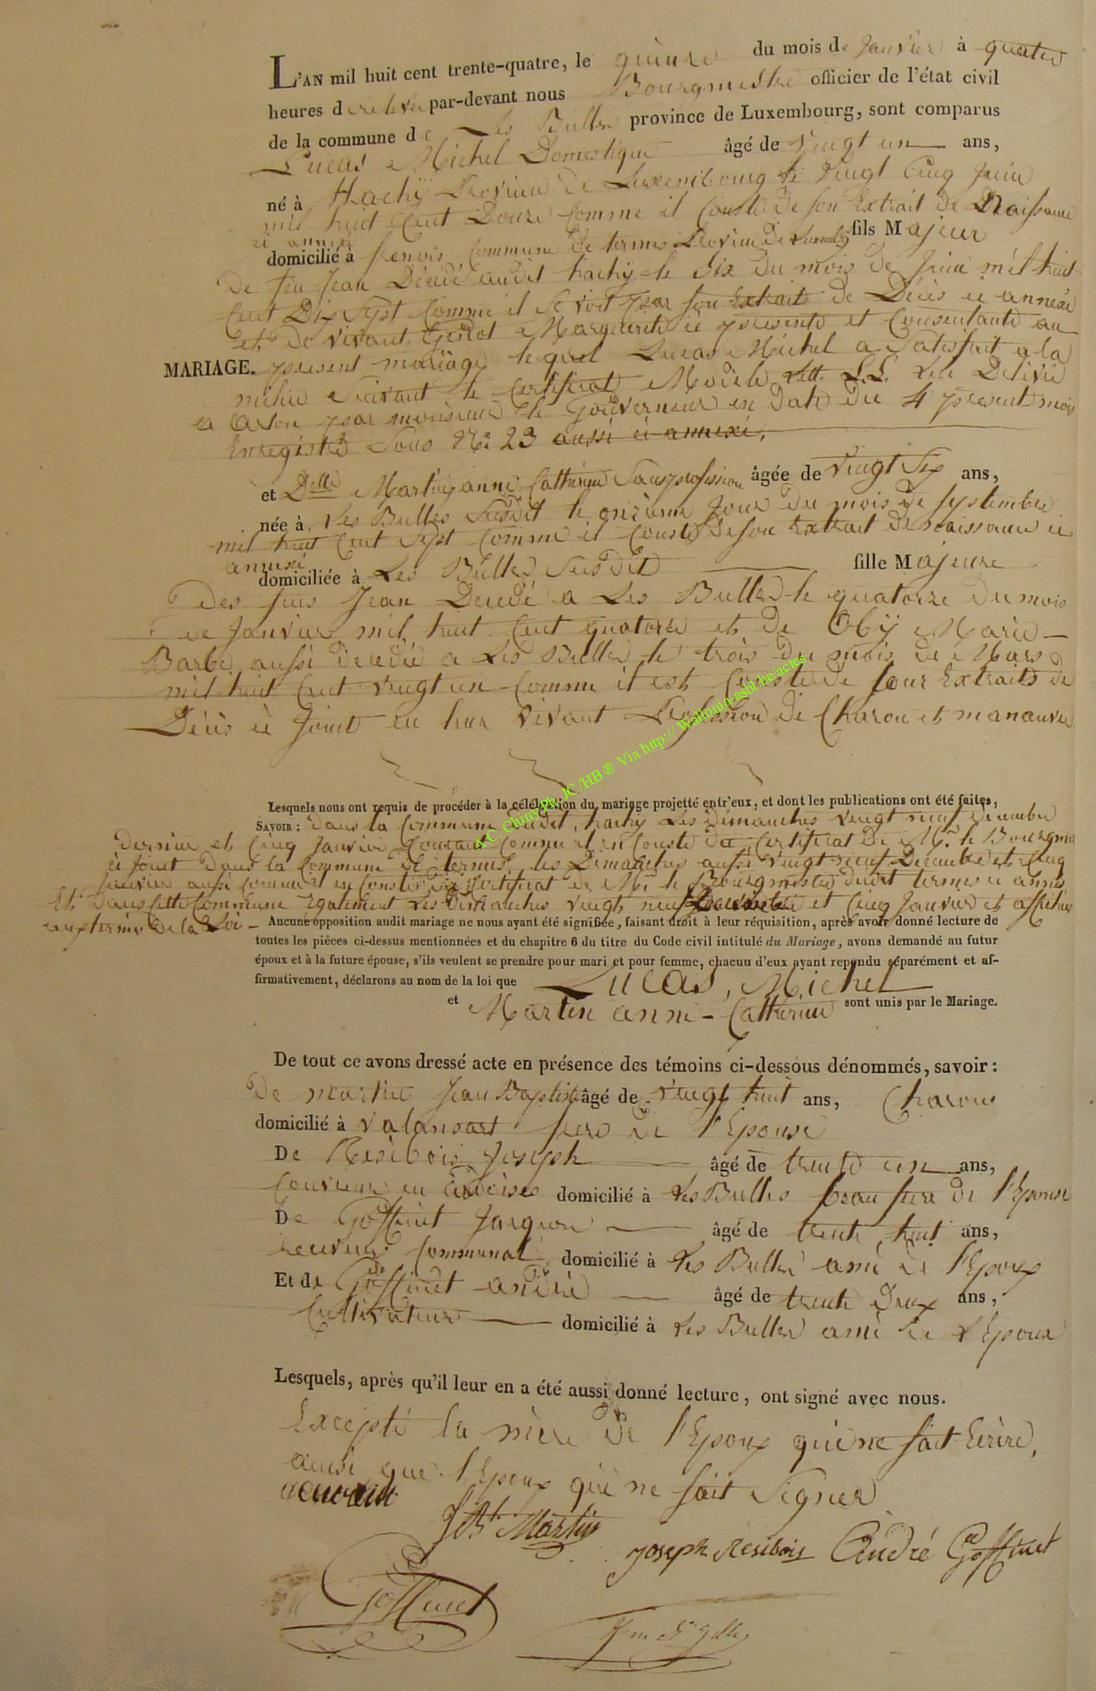 L'AN mil huit cent trente-quatre, le quinze du mois de Janvier à quatre
heures de relevée par-devant nous Bourgmestre officier de l'état civil
de la commune de Les Bulles province de Luxembourg, sont comparus
Lucas Michel Domestique âgé de vingt un ans,
né à Hachÿ Province de Luxembourg le vingt cinq Juin
mil huit Cent Douze Comme il Conste de son Extrait de Naissance
ci annexé
domicilié à frenois Commune de termes Province de fils Majeur
De feu Jean Décédé audit hachÿ le Six du mois de Juin mil huit
Cent Dix Sept Comme il Se voit par son Extrait de Décès ci annexé
et de vivant Marguerite ci présente et Consentante au
MARIAGE. présent mariage lequel Lucas Michel a Satisfait a la
milice Suivant le Certificat Modèle Litt. L.L. Délivré
a arlon par monsieur le Gouverneur en Date du 4 présent mois
Enregistré Sous No. 23 aussi ci annexé,
et Delle Martin anne Catherine Sans profession âgée de vingt Six ans,
née à Les Bulles Susdit le onzième Jour du mois de Septembre
mil huit Cent Sept Comme il Conste De son Extrait de naissance ci
annexé
domiciliée à Les Bulles Susdit fille Majeure
Des feus Jean Décédé a Les Bulles le quatorze du mois
de Janvier mil huit Cent quatorze et de Obÿ Marie
Barbe aussi décédée a Les Bulles le trois du mois de Mars
mil huit Cent vingt un Comme il est Consté de leur Extraits de
Décès ci Joint en leur vivant Profession de Charon et manœuvre
Lesquels nous ont requis de procéder à la célébration du mariage projetté entr'eux, et dont les publications ont été faites,
SAVOIR : Dans la Commune dudit hachy Les Dimanches vingt neuf décembre
dernier et Cinq Janvier Courant Comme il en Conste du Certificat de Mr. le Bourgmre
ci Joint Dans la Commune de termes les Dimanches aussi vingt neuf Décembre et Cinq
Janvier aussi Comme il en Conste du Certificat de Mr. le Bourgmestre dudit termes ci annexé
Et Dans cette Commune également Les Dimanches vingt neuf Décembre et Cinq Janvier et affichés
aux termes de la Loi
Aucune opposition audit mariage ne nous ayant été signifiée, faisant droit à leur réquisition, après avoir donné lecture de
toutes les pièces ci-dessus mentionnées et du chapitre 6 du titre du Code civil intitulé du Mariage, avons demandé au futur
époux et à la future épouse, s'ils veulent se prendre pour mari et pour femme, chacun d'eux ayant repondu séparément et af-
firmativement, déclarons au nom de la loi que Lucas, Michel
et Martin anne - Catherine sont unis par le Mariage.
De tout ce avons dressé acte en présence des témoins ci-dessous dénommés, savoir :
De martin Jean Baptiste âgé de vingt huit ans, Charon
domicilié à Valansart frere de l'Epouse
De Résibois Joseph âgé de trente un ans,
Couvreur en ardoises domicilié à Les Bulles beau frere de l'Epouse
De Goffinet Jacques âgé de trente huit ans,
receveur Communal domicilié à Les Bulles ami de l'Epoux
Et de Goffinet andré âgé de trente Deux ans,
Cultivateur domicilié à Les Bulles ami de L'Epoux
Lesquels, après qu'il leur en a été aussi donné lecture, ont signé avec nous.
Excepté la mère de l'Epoux qui ne sait Ecrire,
ainsi que l'Epoux qui ne sait Signer
JBte Martin
Joseph Résibois André Goffinet
Goffinet
A.C. Chiny Ph. JC/HB ® Via http://Wallonia-asbl.be/actes